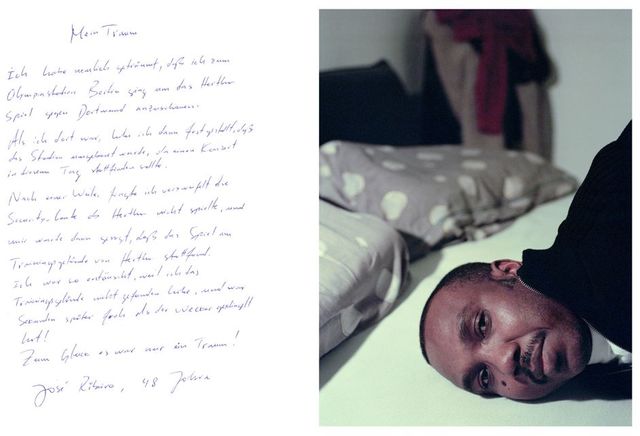 Mein Traum
Ich habe neulich geträumt, daß ich zum
Olympiastadion Berlin ging um das Hertha
Spiel gegen Dortmund anzuschauen.
Als ich dort war, habe ich dann festgestellt, daß
das Stadion umgebaut wurde, da einen Konzert
in diesem Tag stattfinden sollte.
Nach einer Weile fragte ich verzweifelt die
Security-Leute da Hertha nicht spielte, und
mir wurde dann gesagt, daß das Spiel am
Trainingsgelände von Hertha stattfand.
Ich war so enttäuscht, weil ich das
Trainingsgelände nicht gefunden habe, und war
Sekunden später froh als der Wecker geklingelt
hat!
Zum Glück es war nur ein Traum!
José Ribeiro, 48 Jahre